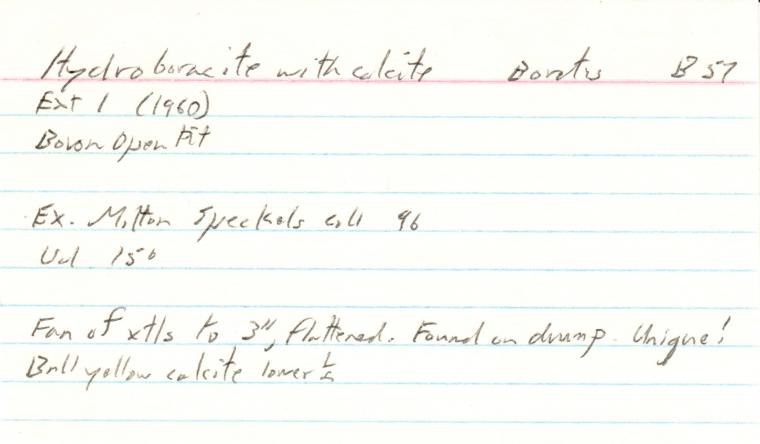 Hydroboracite with calcite Borates B 57
Ext 1 (1960)
Boron Open Pit
Ex. Milton Speckels coll 96
Val 150
Fan of xtls to 3", flattened. Found on dump. Unique!
yellow calcite lower